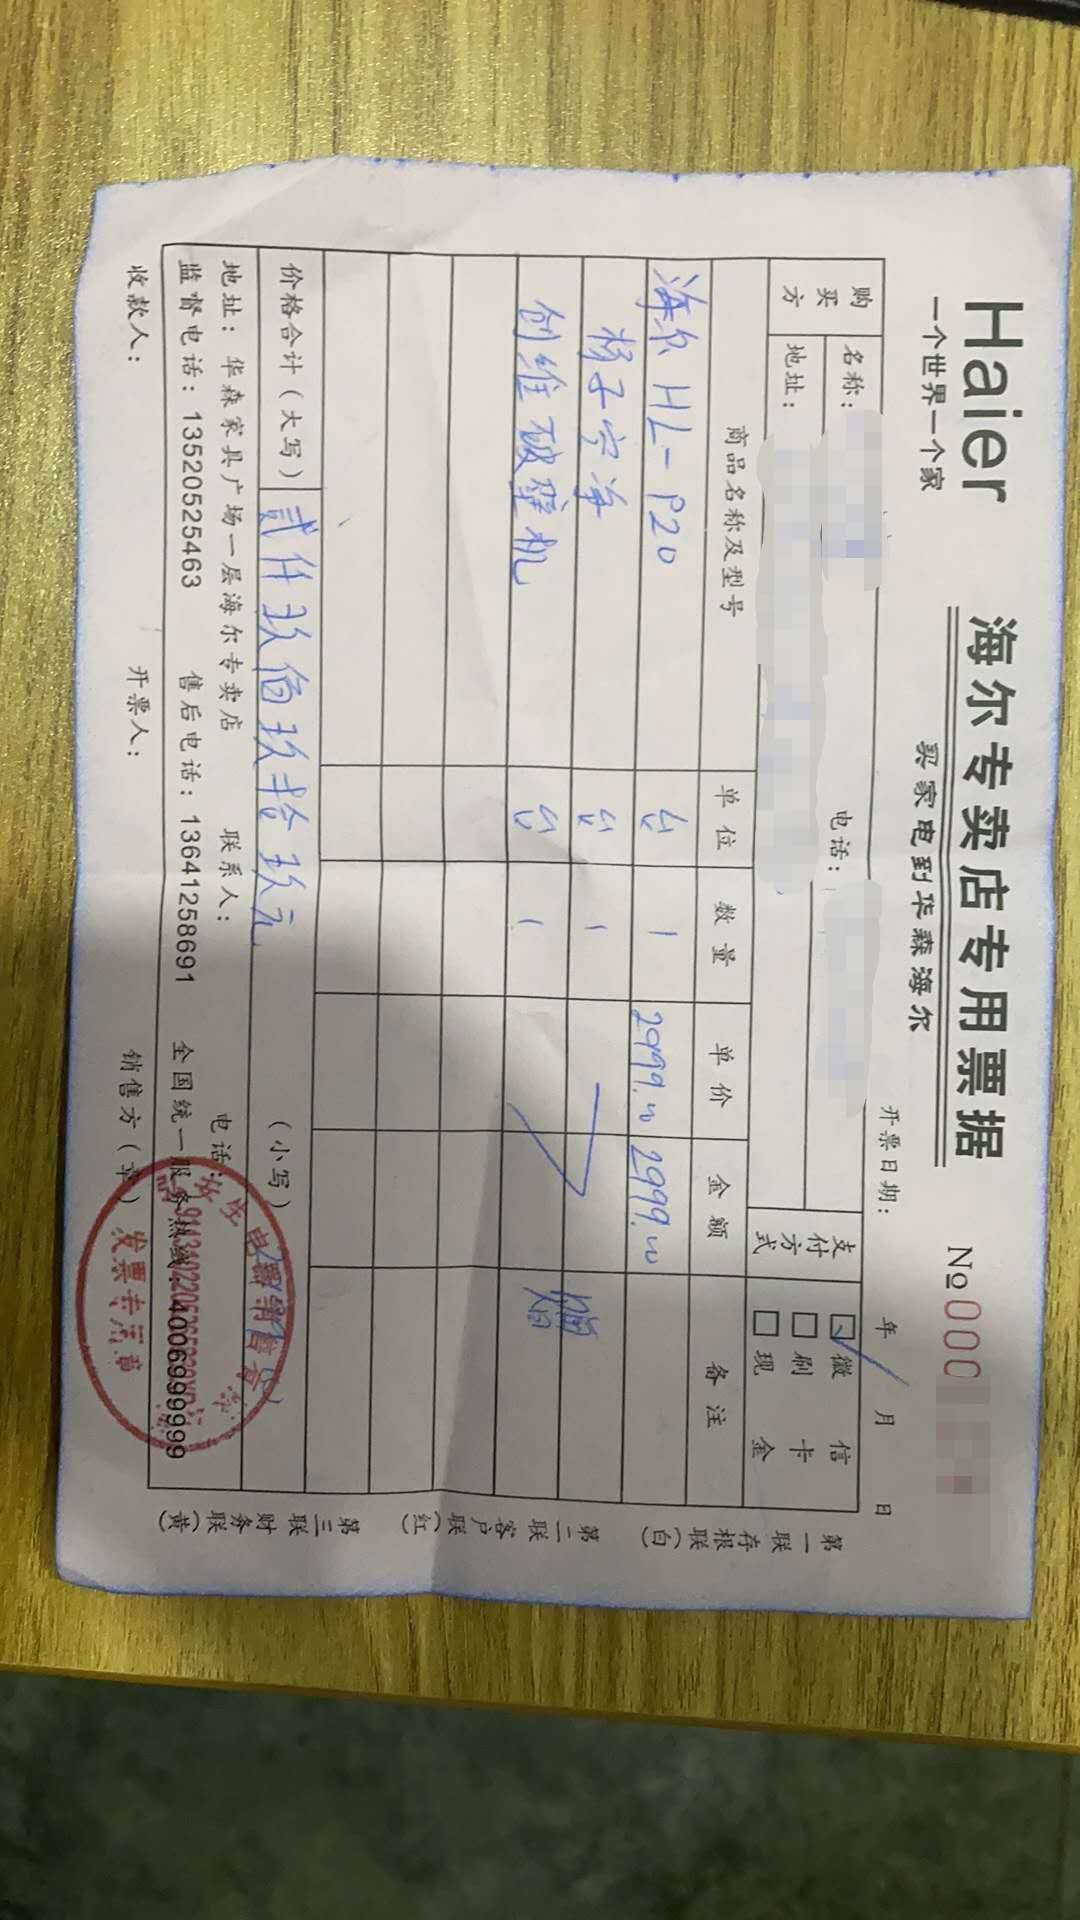 Haier
一个世界一个家
海尔专卖店专用票据
买家电到华森海尔
№000
开票日期： 年 月 日
购买方
名称： 电话：
地址：
支付方式
微信
刷卡
现金
商品名称及型号 单位 数量 单价 金额 备注
海尔 HL-P20 台 1 2999.00 2999.00
台 1 赠
创维破壁机 台 1 赠
价格合计（大写） 贰仟玖佰玖拾玖元 （小写）
地址：华森家具广场一层海尔专卖店 联系人： 电话：
监督电话：13520525463 售后电话：13641258691 全国统一服务热线：4006999999
收款人： 开票人： 销售方（章）
第一联存根联（白） 第二联客户联（红） 第三联财务联（黄）